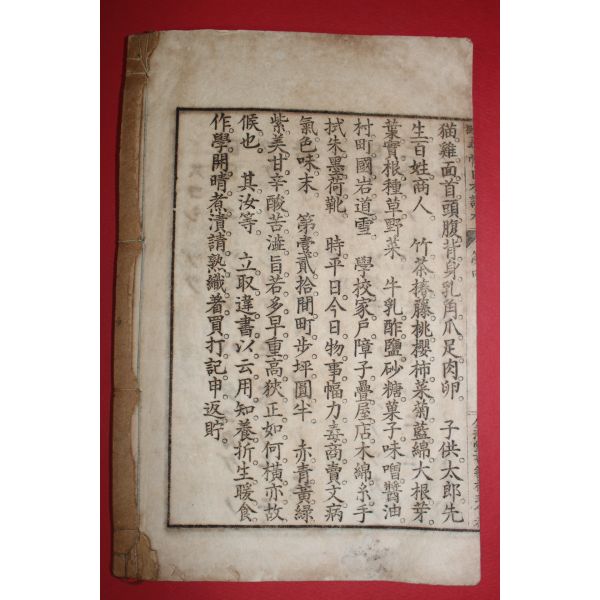 猫。雞。面。首。頭。腹。背。身。乳。角。爪。足。肉。卵。　子供。太郎。先
生。百姓。商人。　竹。茶。椿。藤。桃。櫻。柿。菜。菊。藍。綿。大根。芽。
葉。實。根。種。草。野菜。　牛乳。酢。鹽。砂糖。菓子。味噌。醬油。
村。町。國。岩。道。雪。　學校。家。戶。障子。疊。屋。店。木綿。糸。手
拭。朱。墨。荷。靴。　時。平日。今日。物事。幅。力。毒。商賣。文。病
氣。色。味。末。　第。壹。貳。拾。間。町。步。坪。圓。半。　赤。青。黃。綠。
紫。美。甘。辛。酸。苦。澁。旨。若。多。早。重。高。狹。正。如何。橫。亦。故。
候。也。　其。汝等。　立。取。違。書。以。云。用。知。養。折。生。暖。食。
作。學。開。晴。煮。漬。請。熟。織。着。買。打。記。申。返。貯。